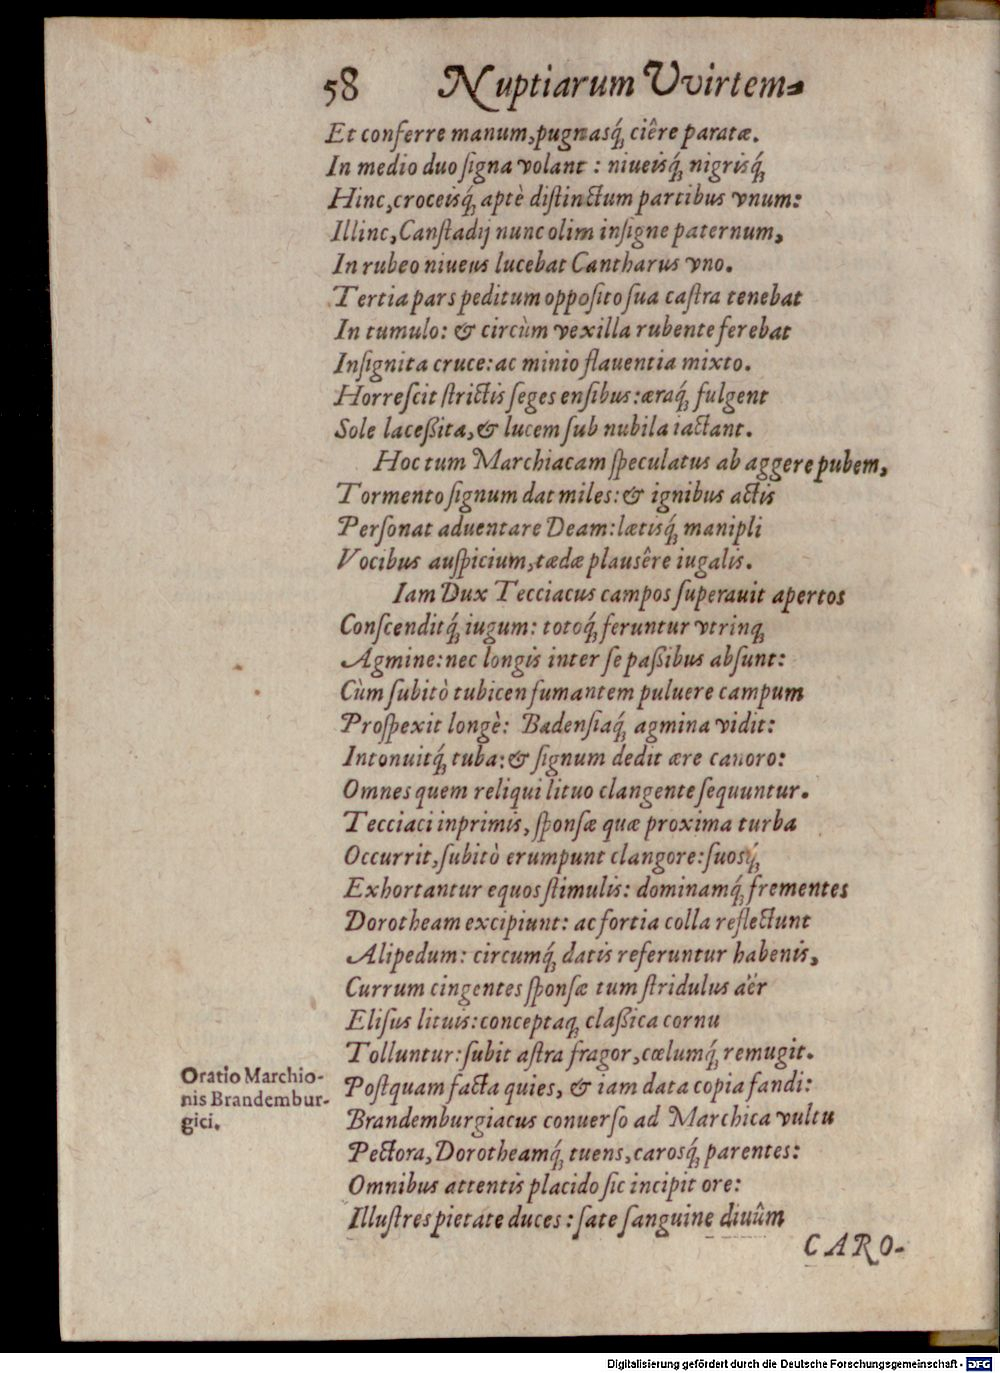 58 Nuptiarum Vvirtem-
Et conferre manum, pugnasq́; ciêre paratæ.
In medio duo signa volant : niueisq́; nigrisq́;
Hinc, croceisq́; aptè distinctum partibus vnum:
Illinc, Canstadij nunc olim insigne paternum,
In rubeo niueus lucebat Cantharus vno.
Tertia pars peditum opposito sua castra tenebat
In tumulo: & circùm vexilla rubente ferebat
Insignita cruce: ac minio flauentia mixto.
Horrescit strictis seges ensibus: æraq́; fulgent
Sole laceßita, & lucem sub nubila iactant.
Hoc tum Marchiacam speculatus ab aggere pubem,
Tormento signum dat miles: & ignibus actis
Personat aduentare Deam: lætisq́; manipli
Vocibus auspicium, tædæ plausêre iugalis.
Iam Dux Tecciacus campos superauit apertos
Conscenditq́; iugum: totoq́; feruntur vtrinq;
Agmine: nec longis inter se paßibus absunt:
Cùm subitò tubicen fumantem puluere campum
Prospexit longè: Badensiaq́; agmina vidit:
Intonuitq́; tuba: & signum dedit ære canoro:
Omnes quem reliqui lituo clangente sequuntur.
Tecciaci inprimis, sponsæ quæ proxima turba
Occurrit, subitò erumpunt clangore: suosq́;
Exhortantur equos stimulis: dominamq́; frementes
Dorotheam excipiunt: ac fortia colla reflectunt
Alipedum: circumq́; datis referuntur habenis,
Currum cingentes sponsæ tum stridulus aër
Elisus lituis: conceptaq; claßica cornu
Tolluntur: subit astra fragor, cœlumq́; remugit.
Oratio Marchio-
nis Brandembur-
gici.
Postquam facta quies, & iam data copia fandi:
Brandemburgiacus conuerso ad Marchica vultu
Pectora, Dorotheamq́; tuens, carosq́; parentes:
Omnibus attentis placido sic incipit ore:
Illustres pietate duces : sate sanguine diuûm
CARO-
Digitalisierung gefördert durch die Deutsche Forschungsgemeinschaft - DFG